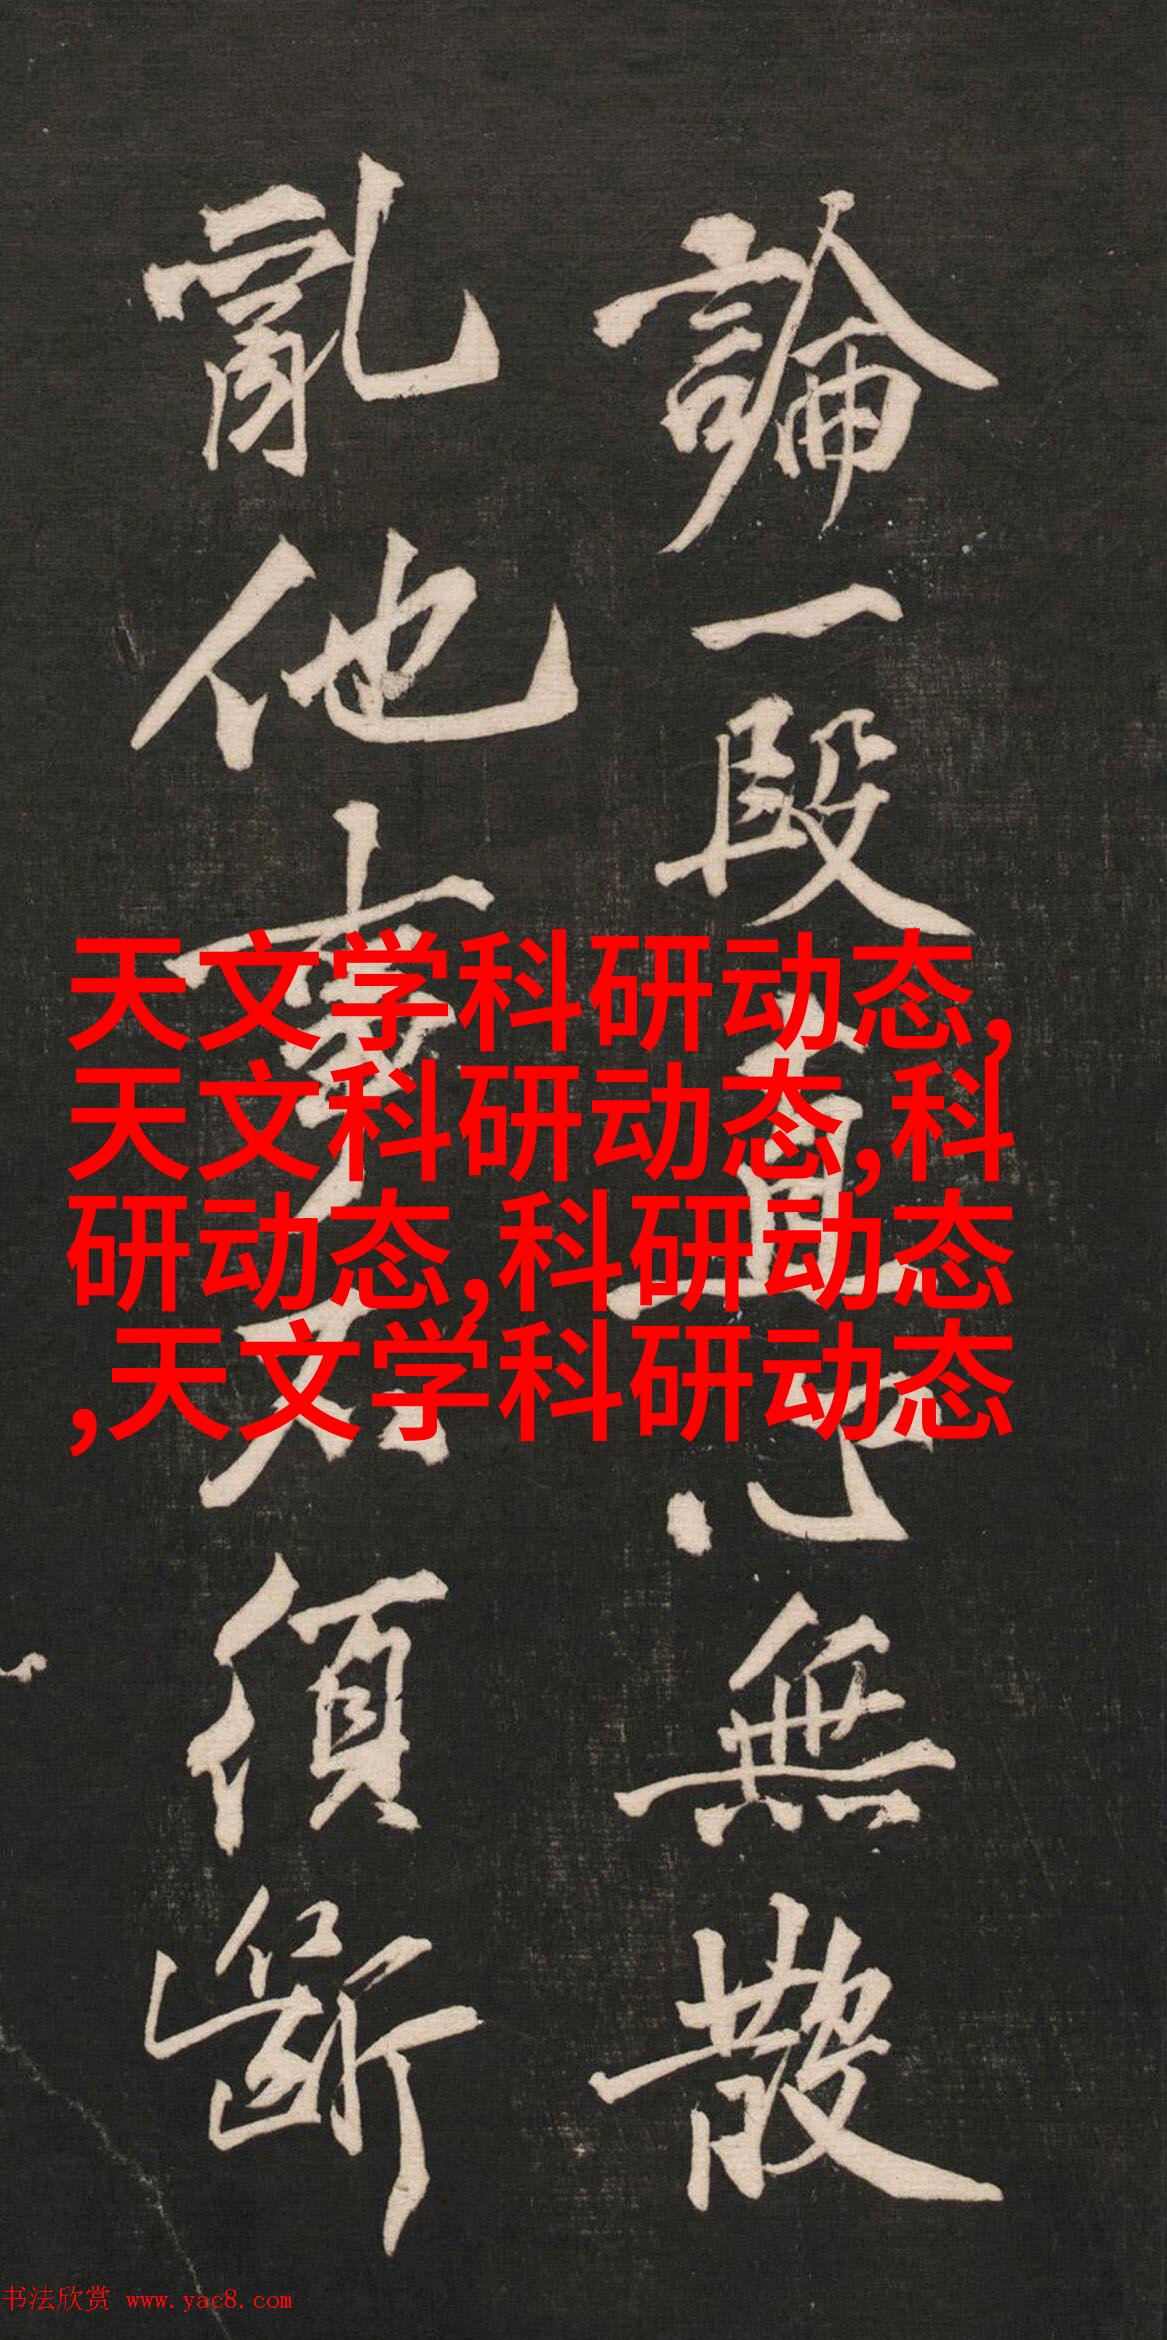 論一段直心無散
亂他事不須斷
天文学科研动态,
天文科研动态,科
研动态,科研动态
,天文学科研动态
书法欣赏 www.yac8.com